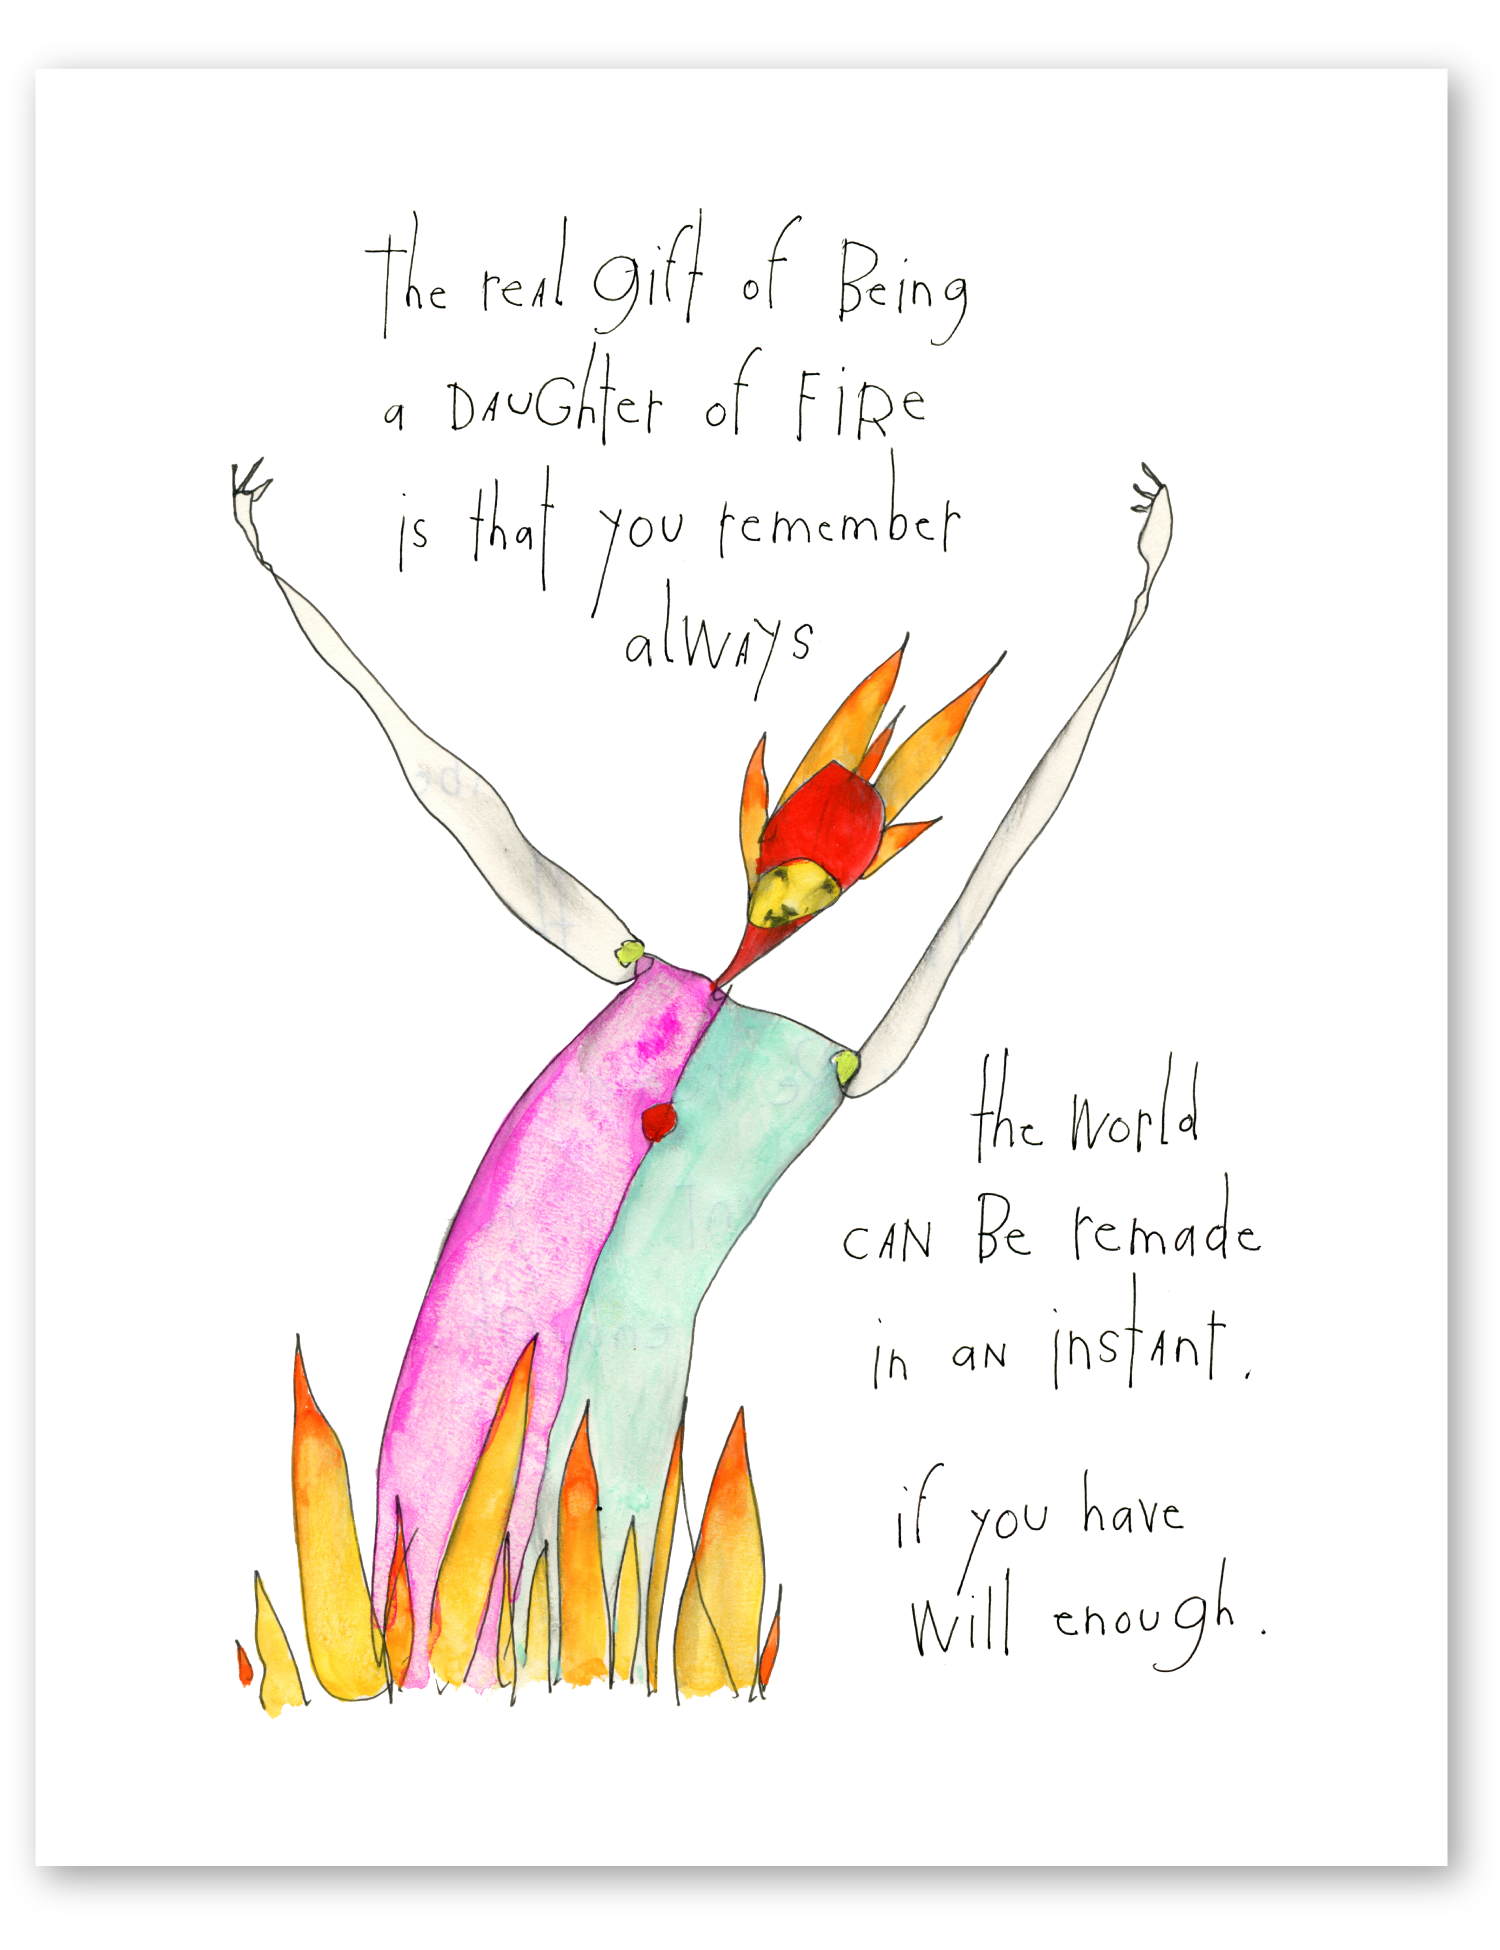 the real gift of Being
a DAUGhter of FiRe
is that you remember
alWAys
the world
CAN Be remade
in aN instAnt.
if you have
will enough.